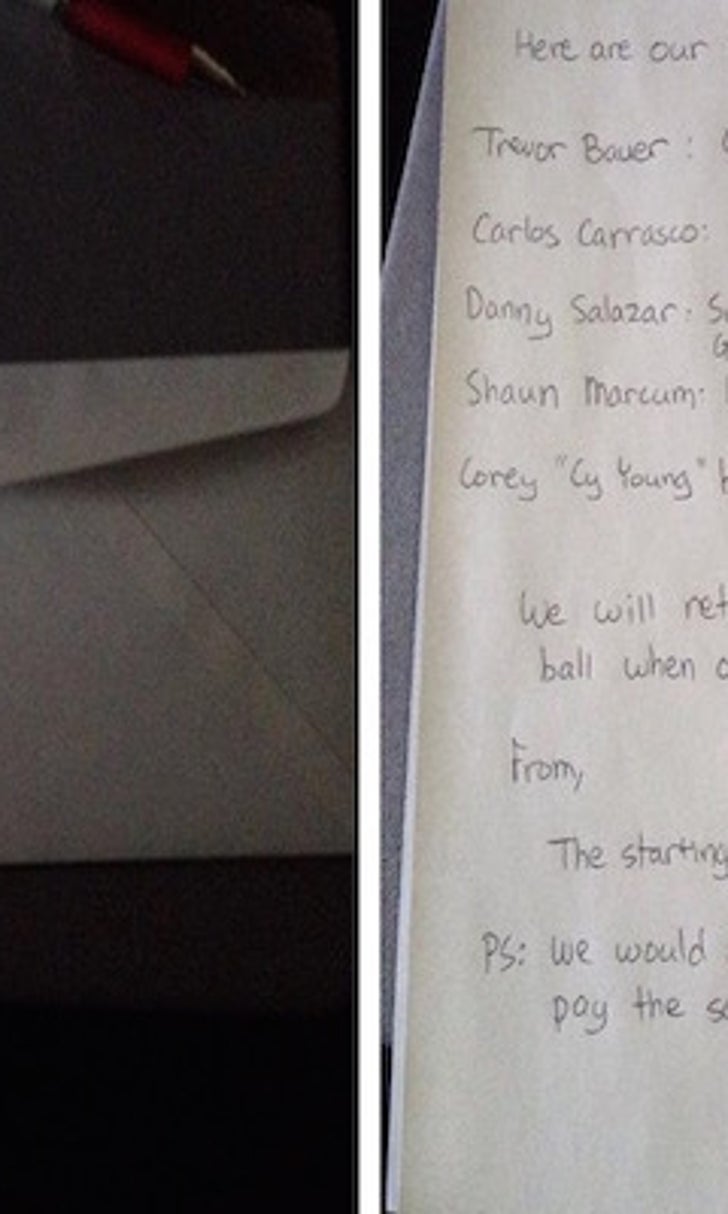 Here are our
Trevor Bauer :
Carlos Carrasco:
Danny Salazar:
Shaun Marcum:
Corey "Cy Young"
We will
ball when
From,
The starting
PS: we would
pay the